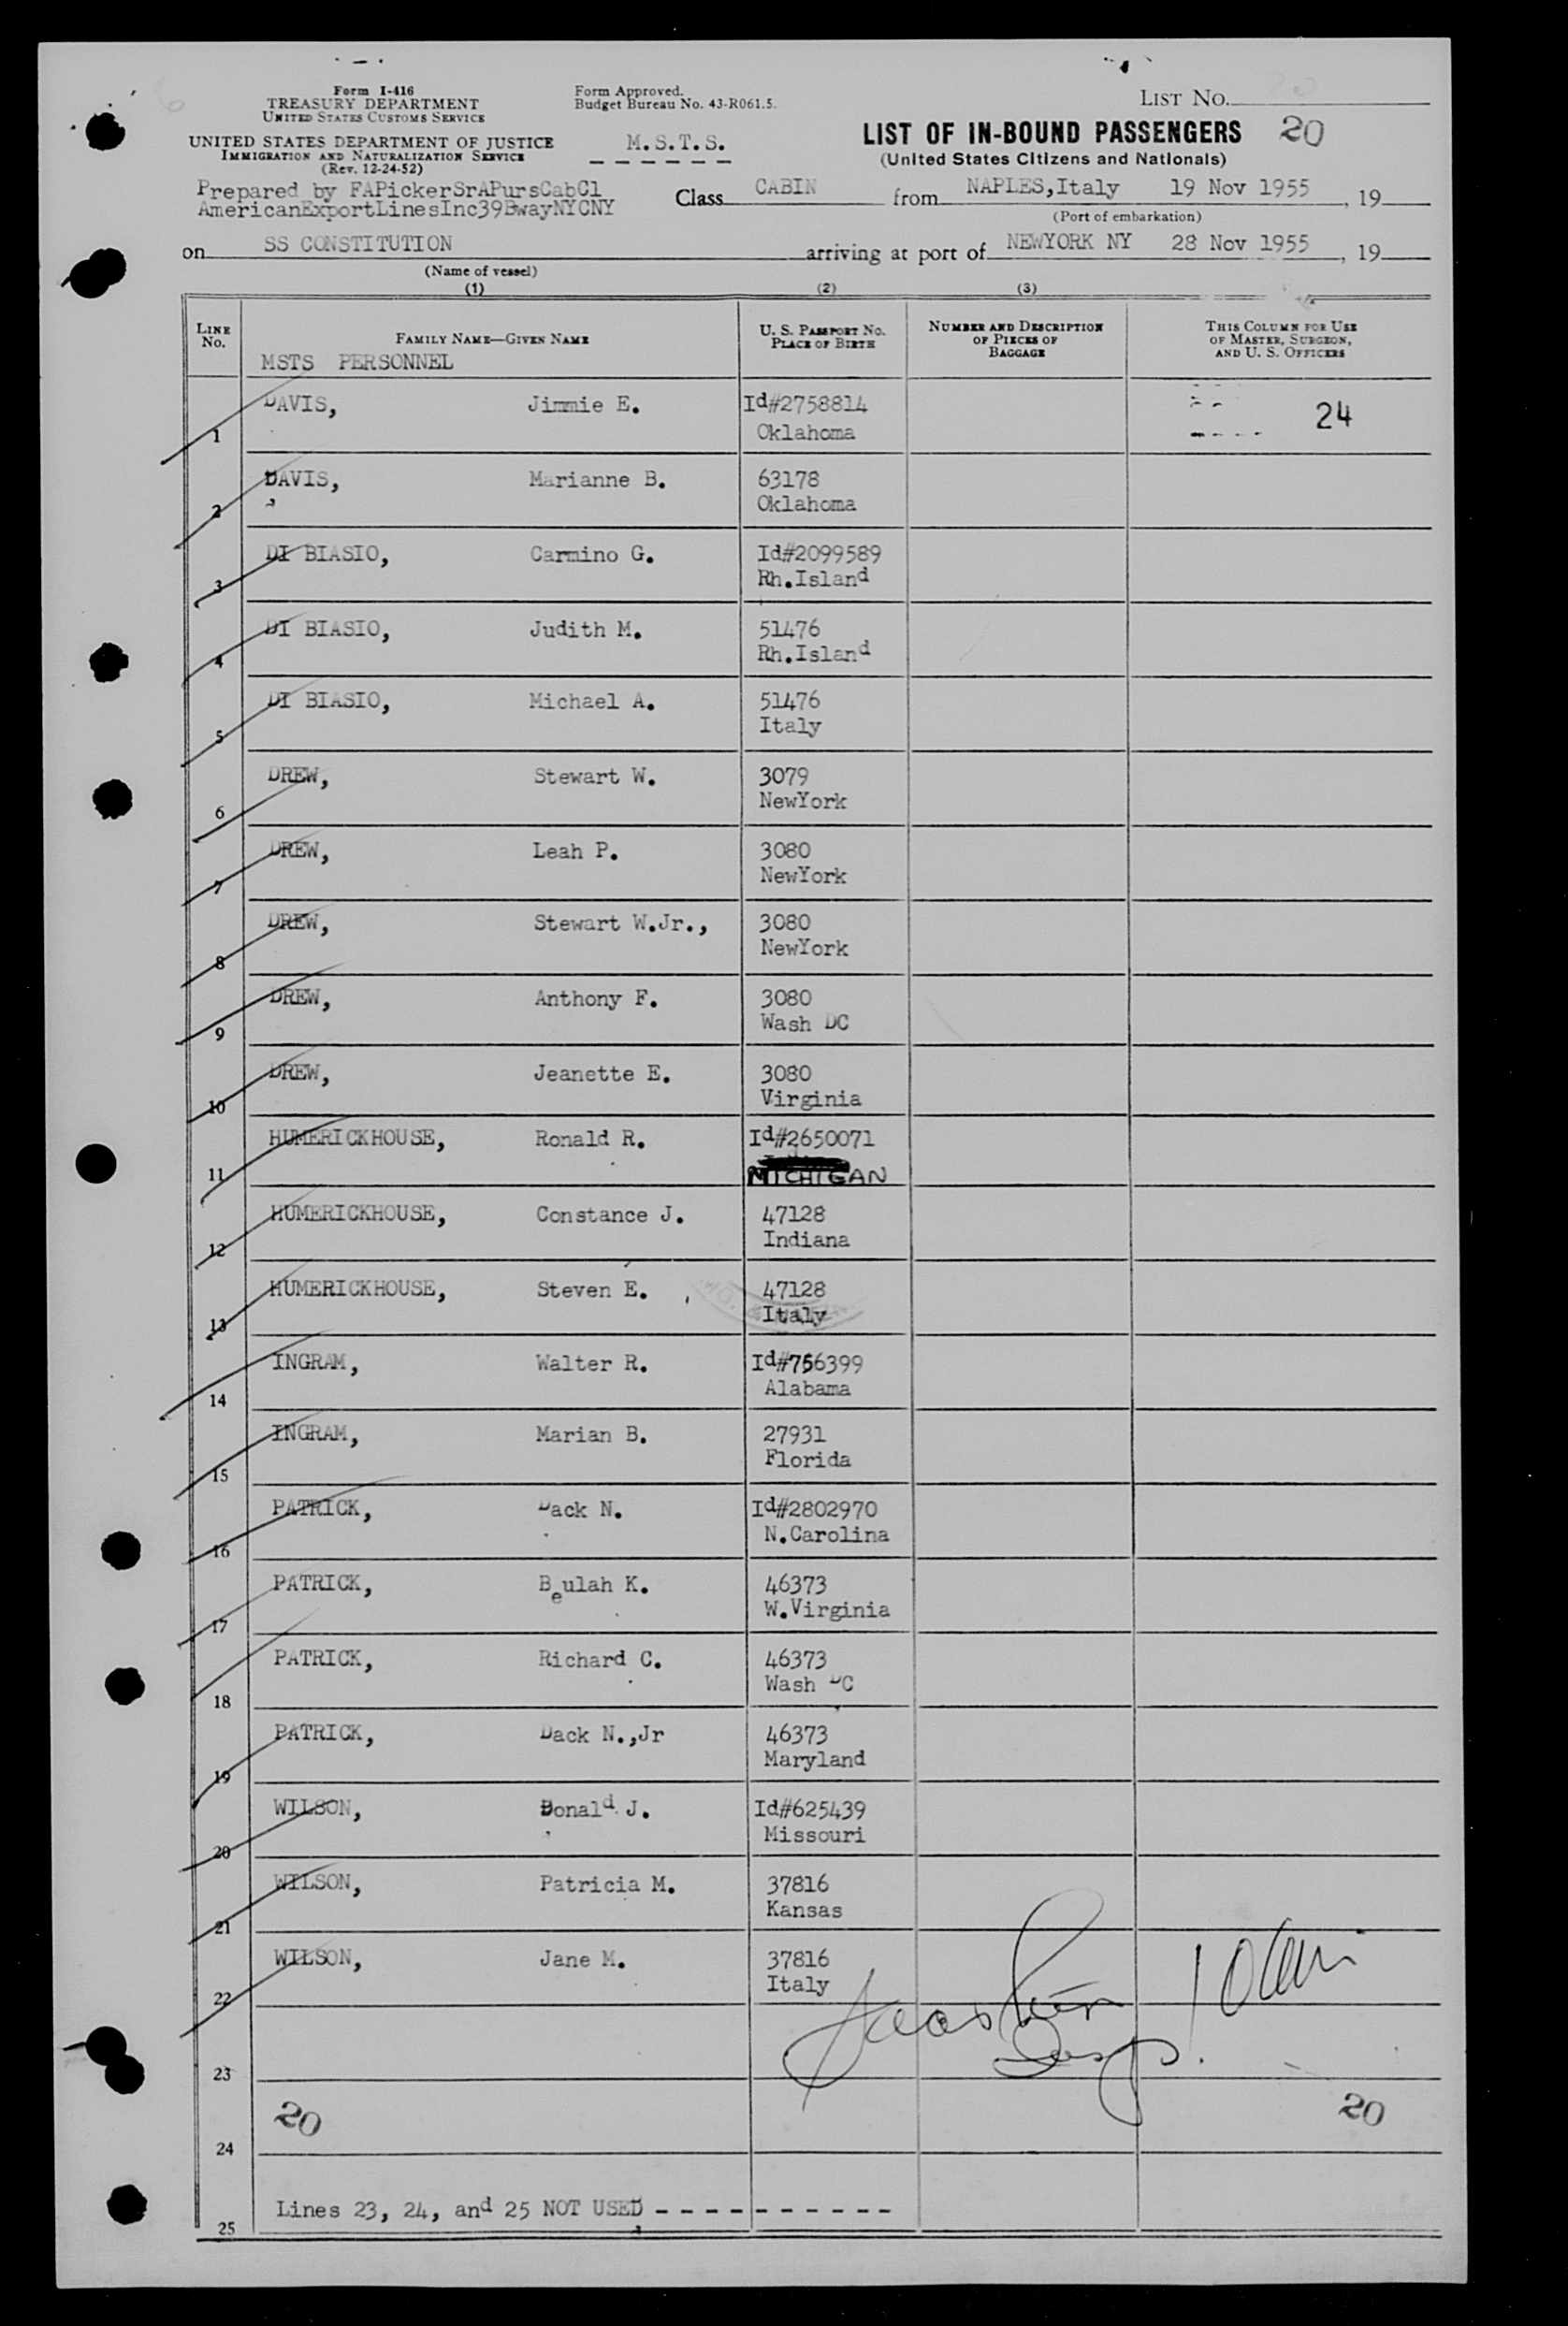 Form I-416
TREASURY DEPARTMENT
UNITED STATES CUSTOMS SERVICE
UNITED STATES DEPARTMENT OF JUSTICE
IMMIGRATION AND NATURALIZATION SERVICE
(Rev. 12-24-52)
Form Approved.
Budget Bureau No. 43-R061.5.
M.S.T.S.
LIST NO.
LIST OF IN-BOUND PASSENGERS 20
(United States Citizens and Nationals)
Prepared by FAPickerSrAPursCabCl
AmericanExportLinesInc39BwayNYCNY
Class CABIN from NAPLES,Italy 19 Nov 1955, 19
(Port of embarkation)
on SS CONSTITUTION arriving at port of NEWYORK NY 28 Nov 1955, 19
(Name of vessel)
(1) (2) (3)
LINE No.
FAMILY NAME—GIVEN NAME
U. S. PASSPORT NO.
PLACE OF BIRTH
NUMBER AND DESCRIPTION
OF PIECES OF
BAGGAGE
THIS COLUMN FOR USE
OF MASTER, SURGEON,
AND U. S. OFFICERS
MSTS PERSONNEL
1 DAVIS, Jimmie E. Id#2758814 24
Oklahoma
2 DAVIS, Marianne B. 63178
Oklahoma
3 DI BIASIO, Carmino G. Id#2099589
Rh.Island
4 DI BIASIO, Judith M. 51476
Rh.Island
5 DI BIASIO, Michael A. 51476
Italy
6 DREW, Stewart W. 3079
NewYork
7 DREW, Leah P. 3080
NewYork
8 DREW, Stewart W.Jr., 3080
NewYork
9 DREW, Anthony F. 3080
Wash DC
10 DREW, Jeanette E. 3080
Virginia
11 HUMERICKHOUSE, Ronald R. Id#2650071
MICHIGAN
12 HUMERICKHOUSE, Constance J. 47128
Indiana
13 HUMERICKHOUSE, Steven E. 47128
Italy
14 INGRAM, Walter R. Id#756399
Alabama
15 INGRAM, Marian B. 27931
Florida
16 PATRICK, Dack N. Id#2802970
N.Carolina
17 PATRICK, Beulah K. 46373
W.Virginia
18 PATRICK, Richard C. 46373
Wash DC
19 PATRICK, Dack N.,Jr 46373
Maryland
20 WILSON, Donald J. Id#625439
Missouri
21 WILSON, Patricia M. 37816
Kansas
22 WILSON, Jane M. 37816
Italy
23
20 20
24
Lines 23, 24, and 25 NOT USED - - - - - - - - - -
25